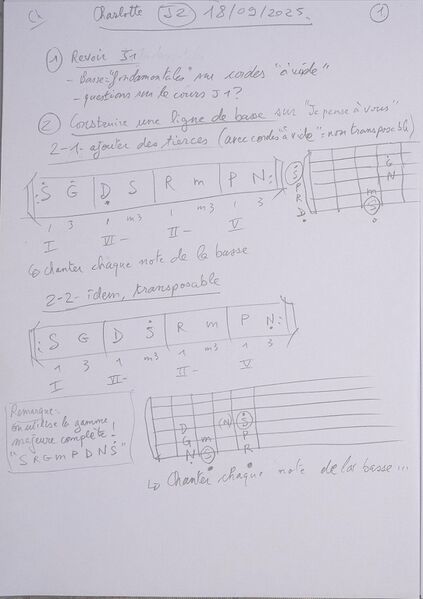 Ch Charlotte J2 18/09/2025. 1
1 Revoir J1
- Basse = "fondamentales" sur cordes "à vide"
- questions sur le cours J1 ?
2 Construire une ligne de basse sur "Je pense à vous"
2-1- ajouter des tierces (avec cordes "à vide" = non transposable)
S G D S R m P N
1 3 1 m3 1 m3 1 3
I VI- II- V
S P R D
G N m S
↳ chanter chaque note de la basse
2-2- idem, transposable
S G D S R m P N
1 3 1 m3 1 m3 1 3
I II- V
Remarque :
on utilise la gamme
majeure complète !
"S R G m P D N S"
D G N m S (N) S D P R
↳ Chanter chaque note de la basse ...